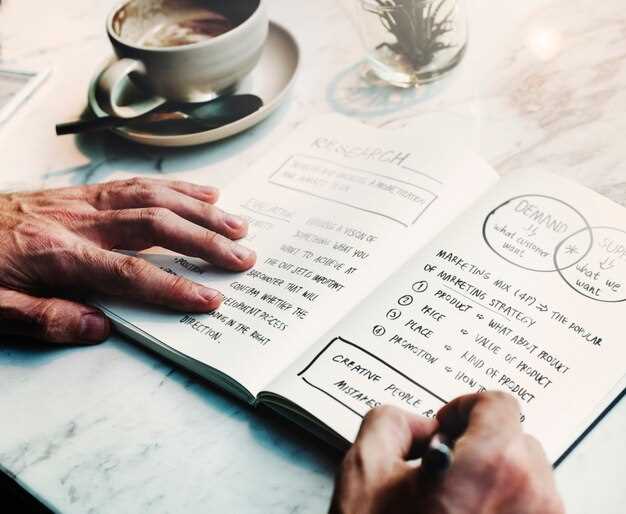 RESEARCH
AND WHAT'S TO GAIN.
HAVING A VISION OF
SOMETHING WHAT YOU
WANT TO ACHIEVE AT
THE OUTSET IMPORTANT
BAROMETER THAT WILL
CONFIRM WHETHER THE
DEVELOPMENT PROCESS
GOING IN THE RIGHT
DIRECTION.
DEMAND
what customer
want
SU
what we
MARKETING MIX (4P) → THE POPULAR
OF MARKETING STRATEGY
① PRODUCT → WHAT ABOUT PRODUCT
② PRICE → VALUE OF PRODUCT
③ PLACE → KIND OF PRODUCT
④ PROMOTION → HOW TO
CREATIVE PEOPLE
MISTAKES